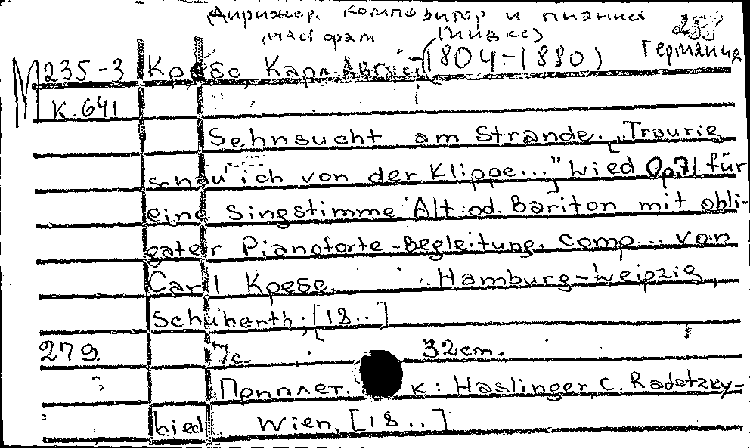 Дирижер, композитор и пианист
Германия
М 235-3 Кребс, Карл Август (1804-1880)
К. 641
Sehnsucht am Strande. „Traurig
schau ich von der Klippe..." Lied Op. 71 für
eine Singstimme Alt od. Bariton mit obli-
gater Pianoforte-Begleitung comp. von
Carl Krebs. Hamburg-Leipzig,
Schuberth, [18..]
279 7с. 32cm.
Припл.ет. к: Haslinger C. Radetzky-
Lied Wien, [18..]